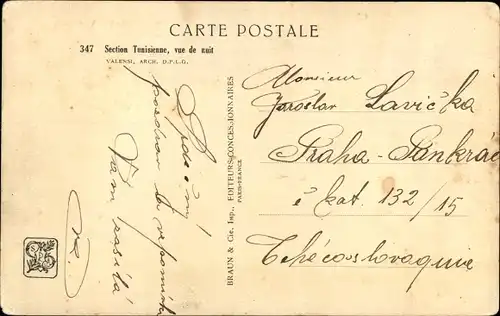 CARTE POSTALE
347 Section Tunisienne, vue de nuit
VALENSI, ARCH. D.P.L.G.
BRAUN & Cie, Imp., EDITEURS-CONCESSIONNAIRES
PARIS-FRANCE
Srdečný
pozdrav a vzpomínku
Vám zasílá
Monsieur
Jaroslav Lavička
Praha-Pankrác
č kat. 132/15
Tchécoslovaquie